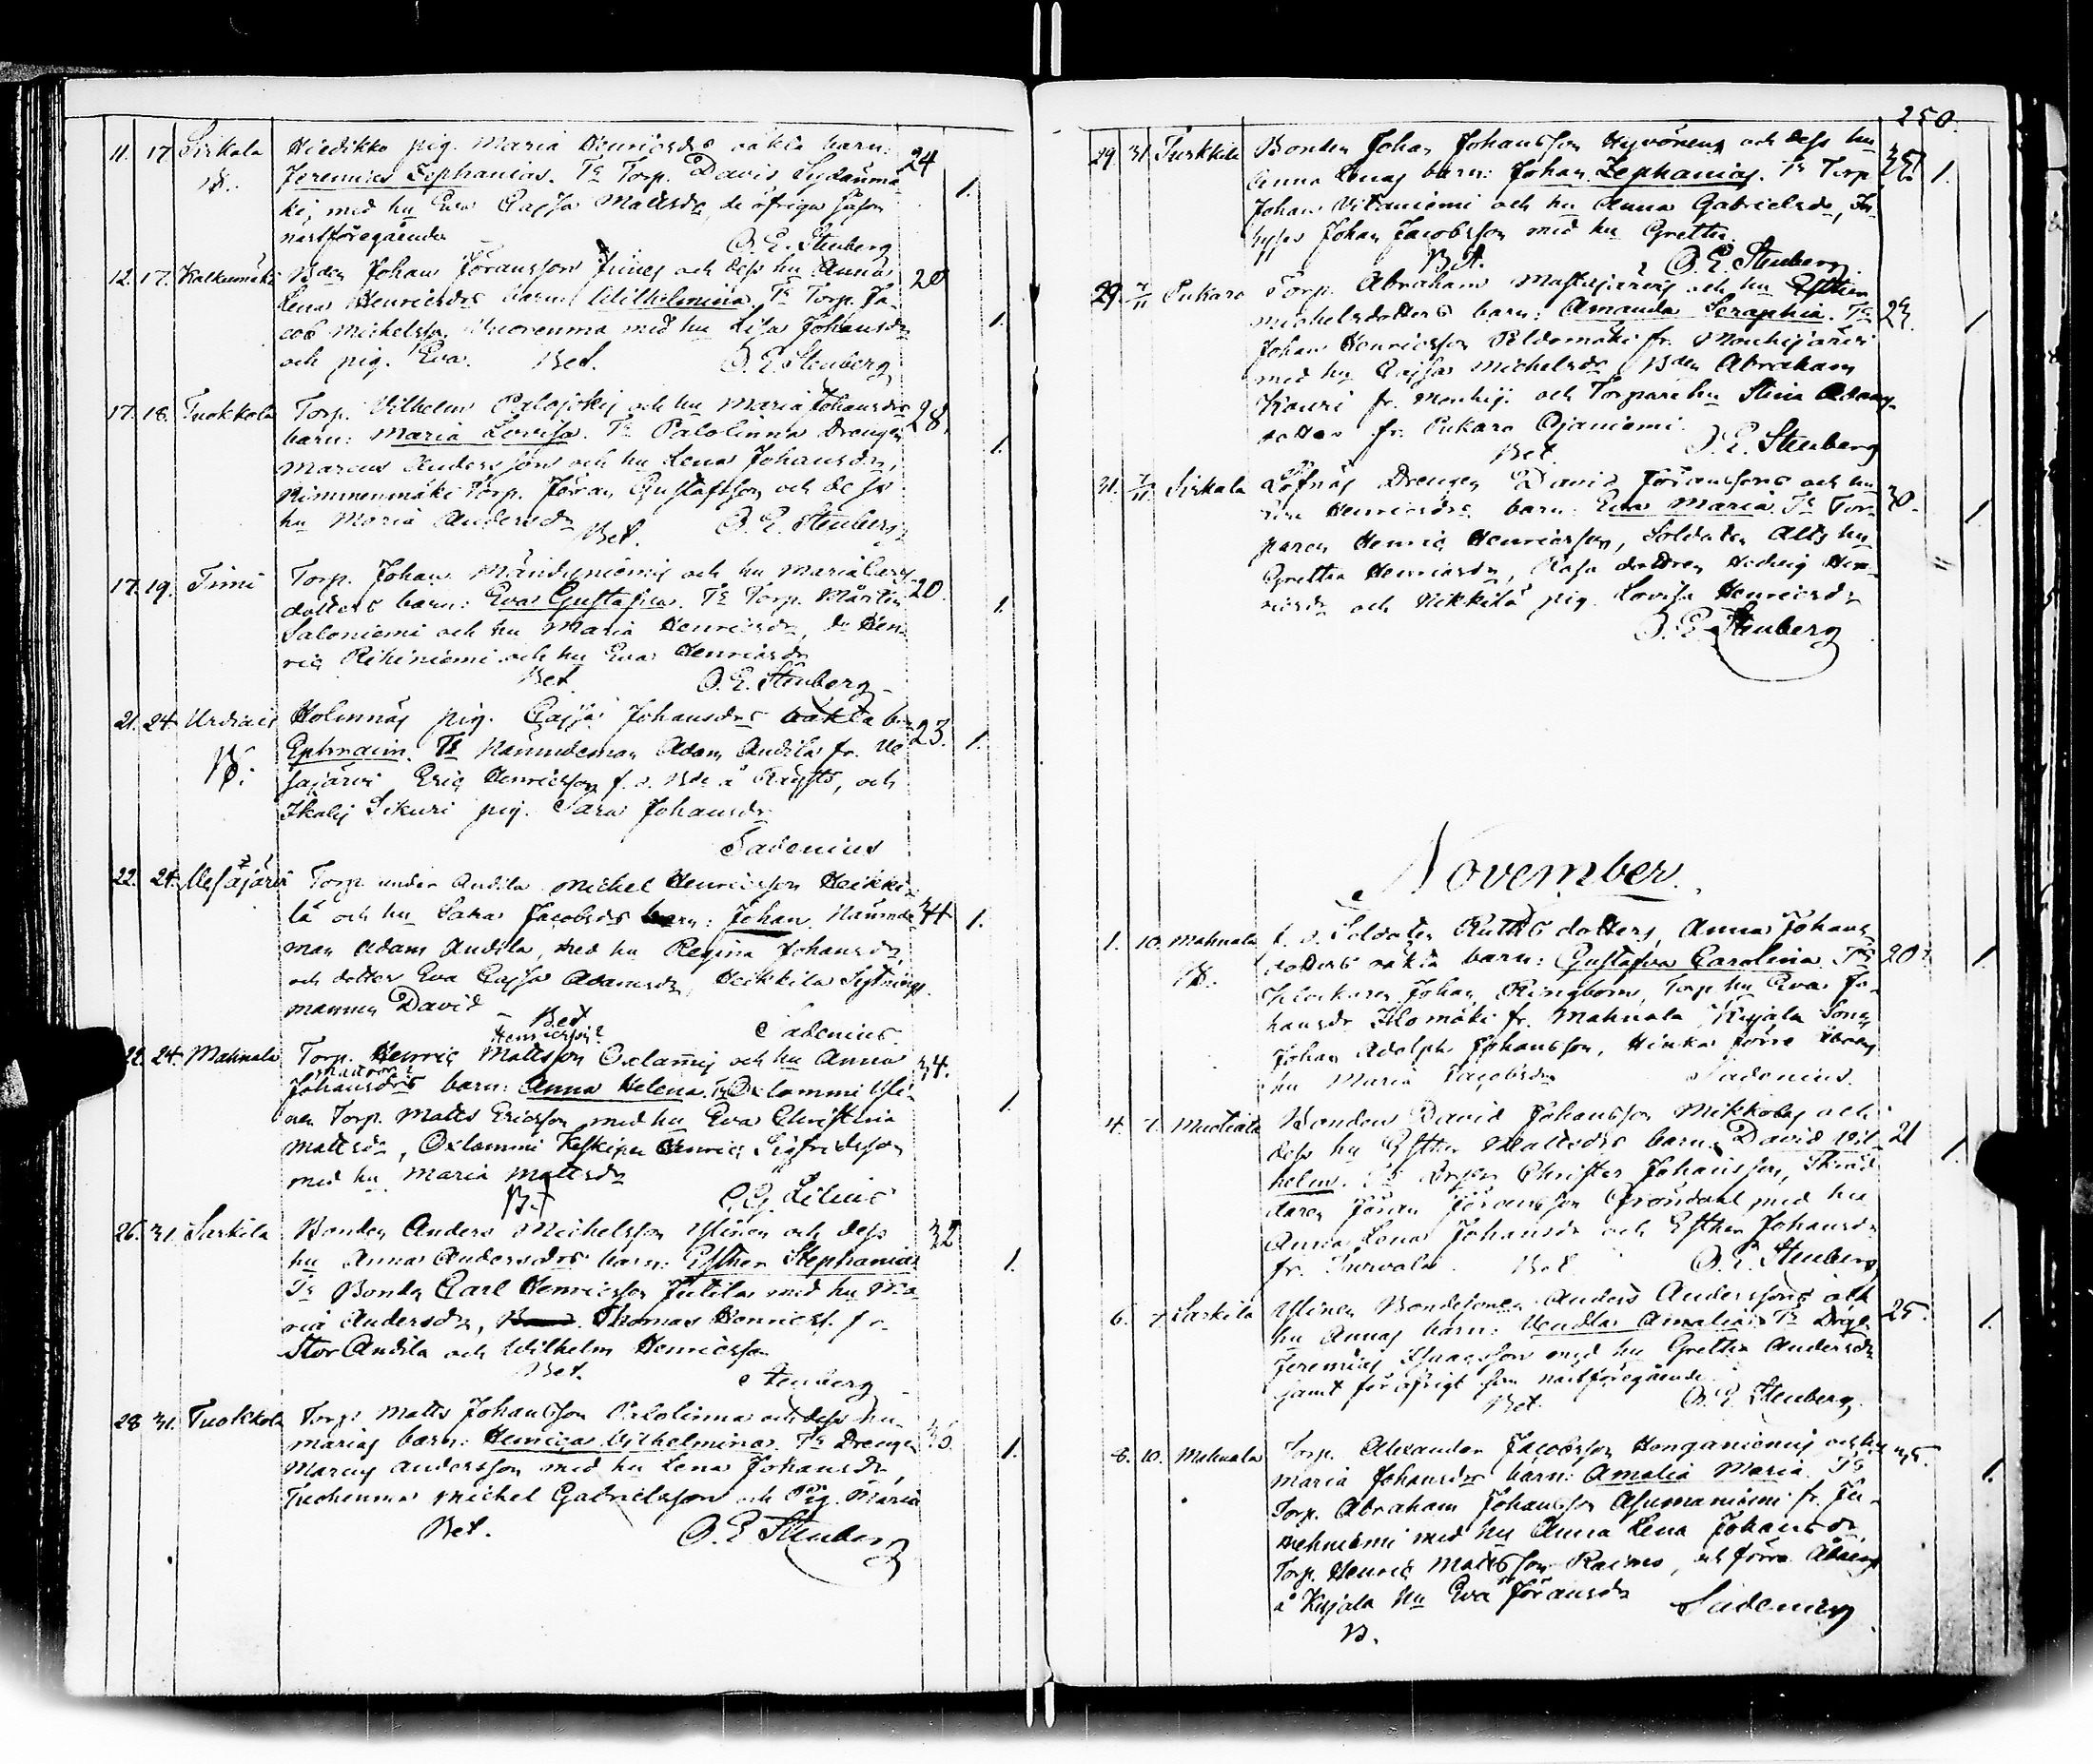 11. 17 Sirkala Hiedikko pig. Maria Henricsdrs oäkta barn: 24
Jeremias Zephanias. Te Torp. David Sydänmä-
ki, med hu Eva Cajsa Mattsdr, de öfriga såsom 1.
nästföregående O. E. Stenberg
12. 17. Kalkunmäki Bden Johan Jöransson och dess hu Anna 20
Lena Henricsdrs barn Wilhelmina. Te Torp. Ja-
cob Michelsson Vuorenma med hu Lisa Johansdr 1.
och pig. Eva. Bet. O. E. Stenberg
17. 18. Tuokkola Torp. Vilhelm Palojokis och hu Maria Johansdrs 28.
barn: Maria Lovisa. Te Palolinna Drengen 1.
Marcus Andersson och hu Lena Johansdr,
Rimmenmäki Torp. Jöran Gustafsson och dess
hu Maria Andersdr Bet. O. E. Stenberg
17. 19. Timi Torp. Johan Mändyniemis och hu Maria Carls
dotters barn: Eva Gustafva. Te Torp. Mårten 20. 1.
Saloniemi och hu Maria Henricsdr, do Hen-
ric Riihiniemi och hu Eva Henricsdr
Bet O. E. Stenberg
21. 24. Urdiais Holmnäs pig. Cajsa Johansdrs oäkta bn 23. 1.
Ephraim. Te Nämndeman Adam Andila fr. Ve-
B. sajärvi Eric Henricsson f. d. Bde å och
Ikalis Sikuri pig. Sara Johansdr
Sadenius
22. 24. Vesajärvi Torp. under Andila Michel Henricsson Heikki-
lä och hu Sara Jacobsdrs barn: Johan. Nämnde 34 1.
man Adam Andila, med hu Regina Johansdr,
och dotter Eva Cajsa Adamsdr, Heikkila Sytnings
mannen David Bet Sadenius.
Henricsson?
22. 24. Mahnala Torp. Henric Mattsson Oxlammis och hu Anna 34.
Johansdrs barn: Anna Helena. Te Oxlammi Yli-
nen Torp. Matts Ericsson med hu Eva Christina 1
Mattsdr, Oxlammi Keskinen Henric Sigfridsson
med hu Maria Mattsdr
Bet Lilius
26. 31. Sarkila Bonden Anders Michelsson Ylinen och dess 32
hu Anna Andersdrs barn: Esther Stephania 1.
Te Bonden Carl Henricsson Jutila med hu Ma-
ria Andersdr, Thomas Henricss. fr.
Stor Andila och Wilhelm Henricsson
Bet. Stenberg
28 31. Tuokkola Torp. Matts Johansson Palolinna och dess hu
Marias barn: Henrica Vilhelmina. Te Drengen 1.
Marcus Andersson med hu Lena Johansdr,
Michel Gabrielsson och Pig. Maria
Bet. O. E. Stenberg
250.
29. 31. Turkkila Bonden Johan Johansson Hyvönens och dess hu
Anna Lenas barn: Johan Zephanias. Te Torp 1.
Johan Vitaniemi och hu Anna Gabrielsdr, In-
hyses Johan Jacobsson med hu Gretha.
Bet. O. E. Stenberg
29 7/11 Pukara Torp. Abraham Mastojärvis och hu Esther
Michelsdotters barn: Amanda Seraphia. Te 29. 1
Johan Henricsson Peldomäki fr. Mouhijärvi
med hu Cajsa Michelsdr Bden Abraham
Kauri fr. Mouhij. och Torpare hu Stina Adams-
dotter fr. Pukara Ojaniemi.
Bet. O. E. Stenberg
31. 7/11 Sirkala Löfnäs Drengen David Jöranssons och hu 30.
Henricsdrs barn: Eva Maria. Te Tor- 1
paren Henric Henricsson, Soldaten Alts hu
Gretha Henricsdr, dottren Hedvig Hen-
ricsdr och Nikkilä pig. Lovisa Henricsdr
O. E. Stenberg
November.
1. 10. Mahnala f. d. Soldaten Ruths dotters, Anna Johans
dotters oäkta barn: Gustafva Carolina. Te 20 1.
B. Klockaren Johan Ringbom, Torp. hu Eva Jo-
hansdr Ilomäki fr. Mahnala, Kyjala Sonen
Johan Adolph Johansson, Hinka förre Åboens
hu Maria Jacobsdr Sadenius.
4. 7. Mustiala Bonden David Johansson Mikkolas och
dess hu Esther Mattsdrs barn David Vil- 21 1.
helm. Te Christer Johansson, Skräd-
daren Jöran Jöransson Gröndahl med hu
Anna Lena Johansdr och Esther Johansdr
fr. Bet O. E. Stenberg
6. 7. Sarkila Ylinen Bondesonen Anders Anderssons och 25. 1.
hu Annas barn: Vendla Amalia. Te Dregn
Jeremias Isaacsson med hu Gretha Andersdr
samt för öfrigt som nästföregående.
Bet. O. E. Stenberg
8. 10. Mahnala Torp. Alexander Jacobsson Honganiemis och hu
Maria Johansdrs barn: Amalia Maria. Te 1.
Torp. Abraham Johansson Asumaniemi fr.
med hu Anna Lena Johansdr,
Torp. Henric Mattsson Raimo, och förre Åboens
å Kyjala hu Eva Jöransdr Sadenius
B.